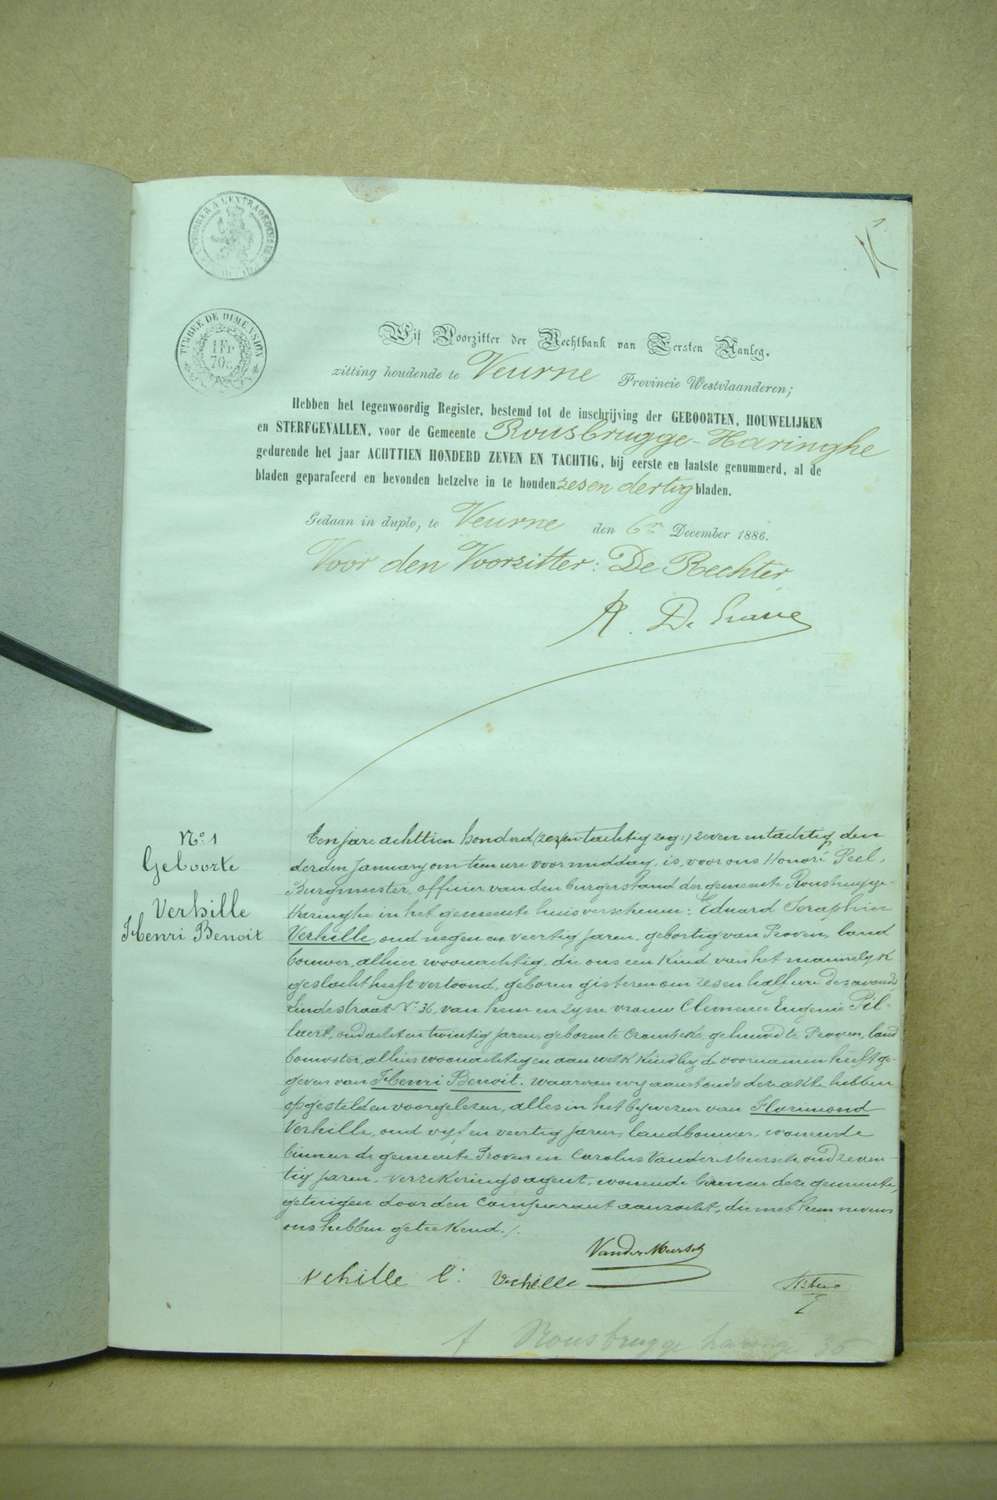 1
TIMBRE DE DIMENSION
1 Fr
70 c
Wij Voorzitter der Rechtbank van Eersten Aanleg,
zitting houdende te Veurne Provincie Westvlaanderen;
Hebben het tegenwoordig Register, bestemd tot de inschrijving der GEBOORTEN, HOUWELIJKEN
en STERFGEVALLEN, voor de Gemeente Rousbrugge-Haringhe
gedurende het jaar ACHTTIEN HONDERD ZEVEN EN TACHTIG, bij eerste en laatste genummerd, al de
bladen geparafeerd en bevonden hetzelve in te houden zes en dertig bladen.
Gedaan in duplo, te Veurne den 6en December 1886.
Voor den Voorzitter: De Rechter
A. De
No 1
Geboorte
Verhille
Henri Benoit
Ten jare achttien honderd (zes en tachtig zeg:) zeven en tachtig, den
derden January om tien ure voormiddag, is, voor ons Honoré Peel,
Burgmeester, officier van den burgerstand der gemeente Rousbrugge-
Haringhe in het gemeentehuis verschenen: Eduard Seraphin
Verhille, oud negen en veertig jaren, gebortig van Proven, land
bouwer, alhier woonachtig, die ons een kind van het mannelyk
geslacht heeft vertoond, geboren gisteren om zes en half ure des avonds
Lindestraat No 36, van hem en zyne vrouw Clemence Eugenie Pil-
laert, oud acht en twintig jaren, geboren te Crombeke, gehuwd te Proven, land
bouwster, alhier woonachtig en aan welk kind hy de voornamen heeft ge-
geven van Henri Benoit. waarvan wy aanstonds deze akte hebben
opgesteld en voorgelezen, alles in het bywezen van Florimond
Verhille, oud vyf en veertig jaren, landbouwer, wonende
binnen de gemeente Proven en Carolus Vander Meersch, oud zeven-
tig jaren, verzekeringsagent, wonende binnen deze gemeente,
getuigen door den comparant aanzocht, die met hem nevens
ons hebben geteekend./.
Vander Mersch
Verhille E: Verhille
f Rousbrugge haringe 36